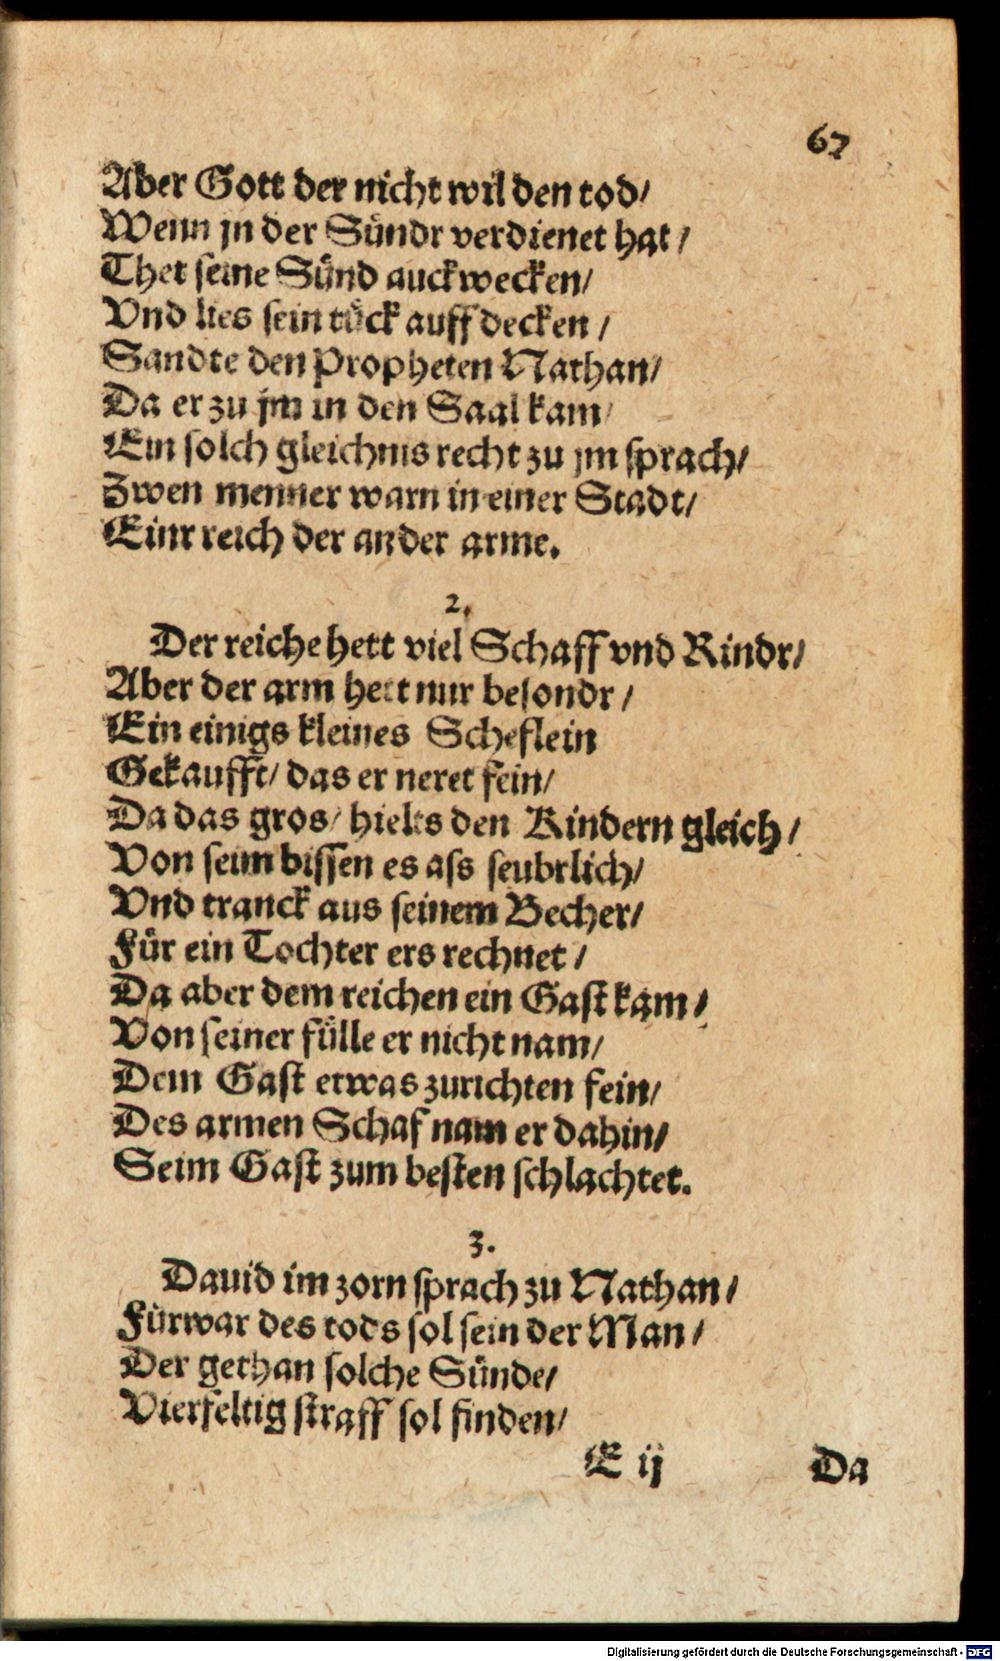 67
Aber Gott der nicht wil den tod/
Wenn jn der Sündr verdienet hat/
Thet seine Sünd auckwecken/
Vnd lies sein tück auff decken/
Sandte den Propheten Nathan/
Da er zu jm in den Saal kam/
Ein solch gleichnis recht zu jm sprach/
Zwen menner warn in einer Stadt/
Einr reich der ander arme.
2.
Der reiche hett viel Schaff vnd Rindr/
Aber der arm hett nur besondr/
Ein einigs kleines Scheflein
Gekaufft/ das er neret fein/
Da das gros/ hielts den Kindern gleich/
Von seim bissen es ass seubrlich/
Vnd tranck aus seinem Becher/
Für ein Tochter ers rechnet/
Da aber dem reichen ein Gast kam/
Von seiner fülle er nicht nam/
Dem Gast etwas zurichten fein/
Des armen Schaf nam er dahin/
Seim Gast zum besten schlachtet.
3.
Dauid im zorn sprach zu Nathan/
Fürwar des tods sol sein der Man/
Der gethan solche Sünde/
Vierfeltig straff sol finden/
E ij Da
Digitalisierung gefördert durch die Deutsche Forschungsgemeinschaft - DFG